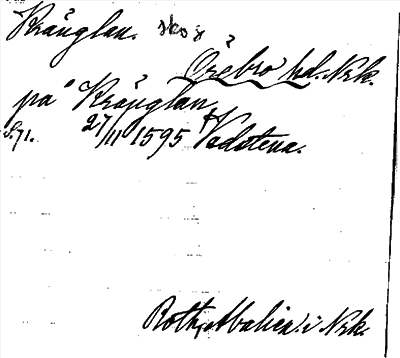 Kräuglan. skog
Örebro hd. Nrk.
på Kräuglan
S. 71. 27/11 1595 Vadstena.
Roth, i Nrk.